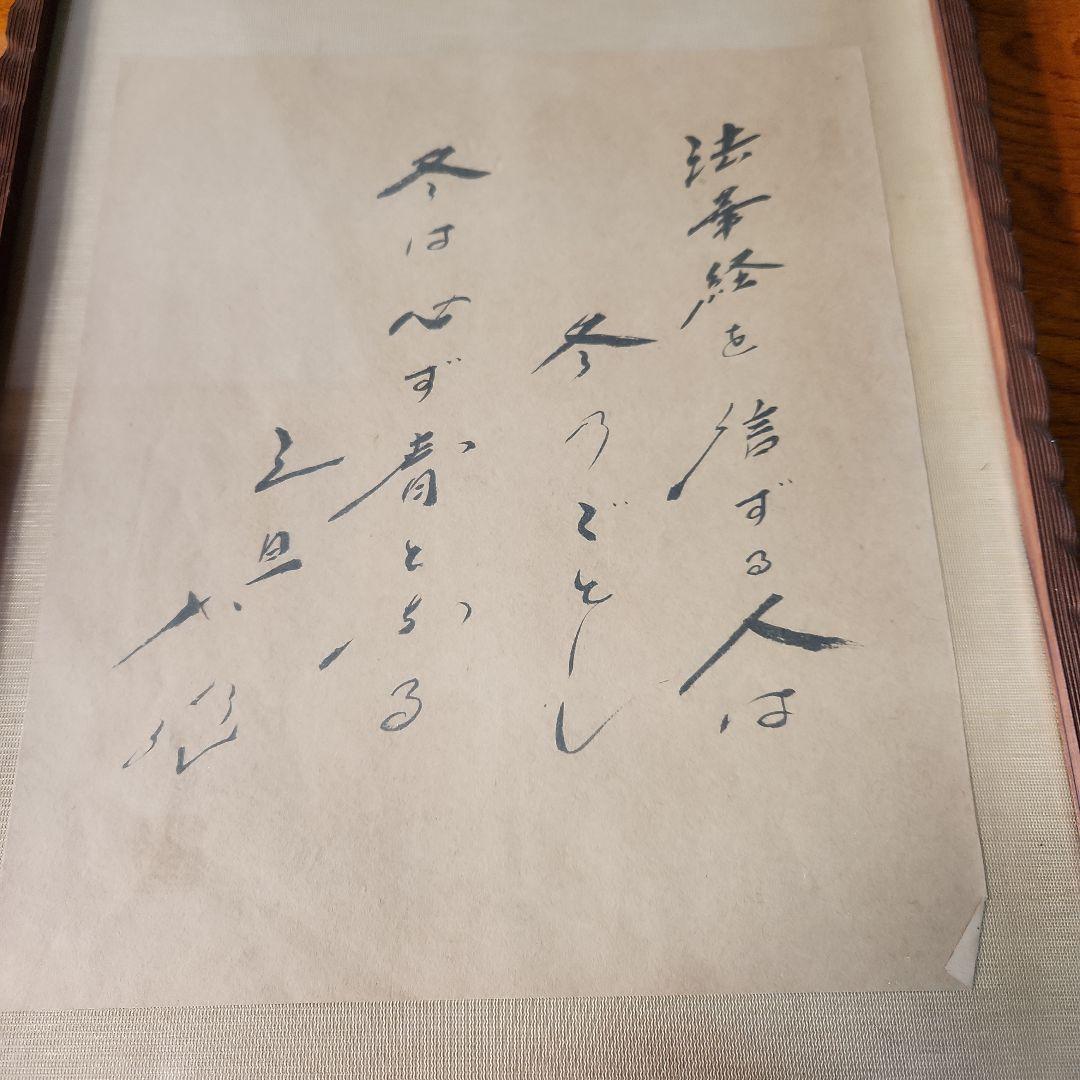 法華経を信ずる人は
冬のごとし
冬は必ず春となる
元旦